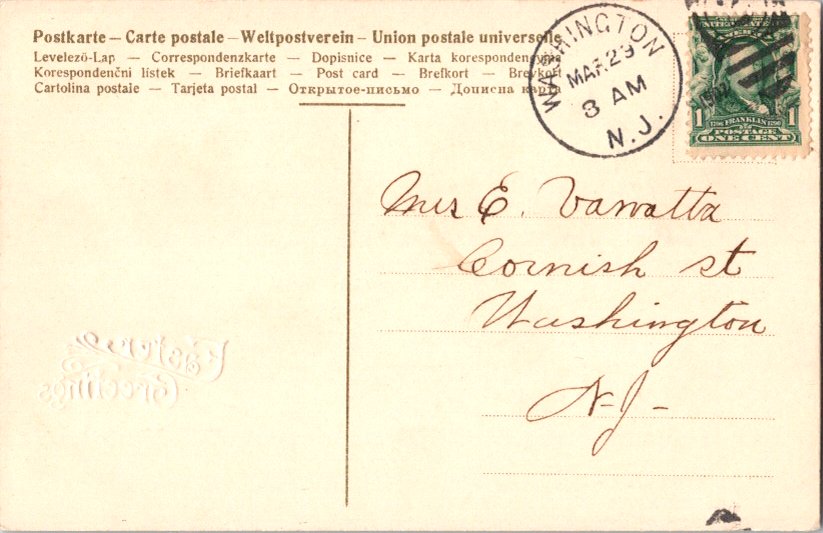 Postkarte – Carte postale – Weltpostverein – Union postale universelle
Levelező-Lap — Correspondenzkarte — Dopisnice — Karta korespondencyjna
Korespondenční lístek — Briefkaart — Post card — Brefkort — Brevkort
Cartolina postale — Tarjeta postal — Открытое-письмо — Дописна карта
WASHINGTON
MAR 29
8 AM
N.J.
1907
1 FRANKLIN 1
POSTAGE
ONE CENT
Mrs E. Vanatta
Cornish st
Washington
N-J-
Easter
Greetings